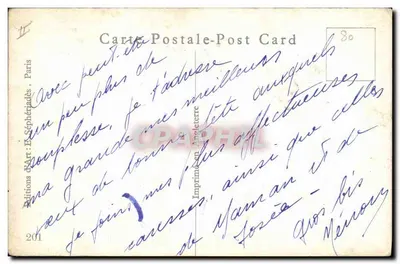 II
Carte Postale-Post Card
80
Editions d'Art: E. Séphériadès. Paris
Imprimé en Angleterre
201
CARTORUM
avec peut-être
un peu plus de
souplesse, je t'adresse
ma grande mes meilleurs
vœux de bonne fête auxquels
je joins mes plus affectueuses
caresses, ainsi que celles
de Maman et de
Josée -
Gros bis